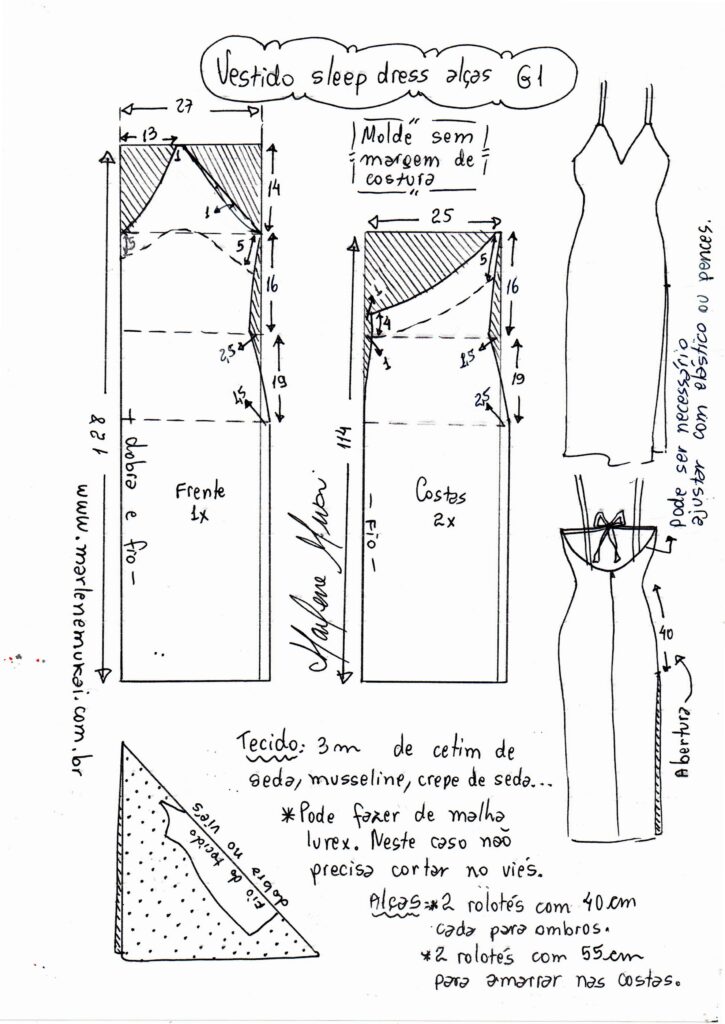 Vestido sleep dress alças G1
27
13
1
14
1
5
5
16
2,5
19
1,5
128
+ dobra e fio -
Frente
1x
www.marlenemukai.com.br
Molde sem
margem de
costura
25
5
16
1
4
1
1,5
19
2,5
114
- Fio -
Costas
2x
Marlene Mukai
pode ser necessário
ajustar com elástico ou pences.
40
Abertura
Tecido: 3m de cetim de
seda, musseline, crepe de seda...
*Pode fazer de malha
lurex. Neste caso não
precisa cortar no viés.
Alças=*2 rolotés com 40cm
cada para ombros.
*2 rolotés com 55cm
para amarrar nas costas.
Fio do tecido
dobra no viés